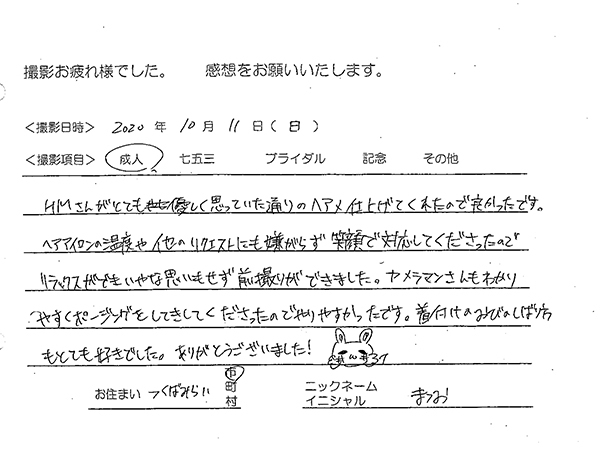 撮影お疲れ様でした。 感想をお願いいたします。
＜撮影日時＞ 2020 年 10 月 11 日 ( 日 )
＜撮影項目＞ 成人 七五三 ブライダル 記念 その他
HMさんがとても優しく思っていた通りのヘアメ仕上げてくれたので良かったです。
ヘアアイロンの温度や他のリクエストにも嫌がらず笑顔で対応してくださったので
リラックスができいやな思いもせず前撮りができました。カメラマンさんもわかり
やすくポージングをしてきしてくださったのでやりやすかったです。着付けのおびのしばり方
もとても好きでした。ありがとうございました!
お住まい つくばみらい 市 町 村 ニックネーム イニシャル まつお